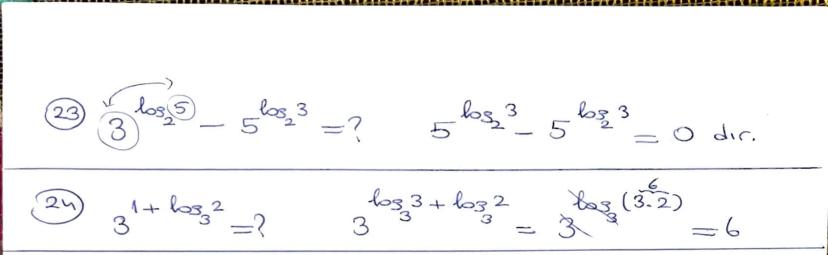 23) 3^{log_2 5} - 5^{log_2 3} = ? 5^{log_2 3} - 5^{log_2 3} = 0 dır.
24) 3^{1 + log_3 2} = ? 3^{log_3 3 + log_3 2} = 3^{log_3 (3.2)} = 6
6